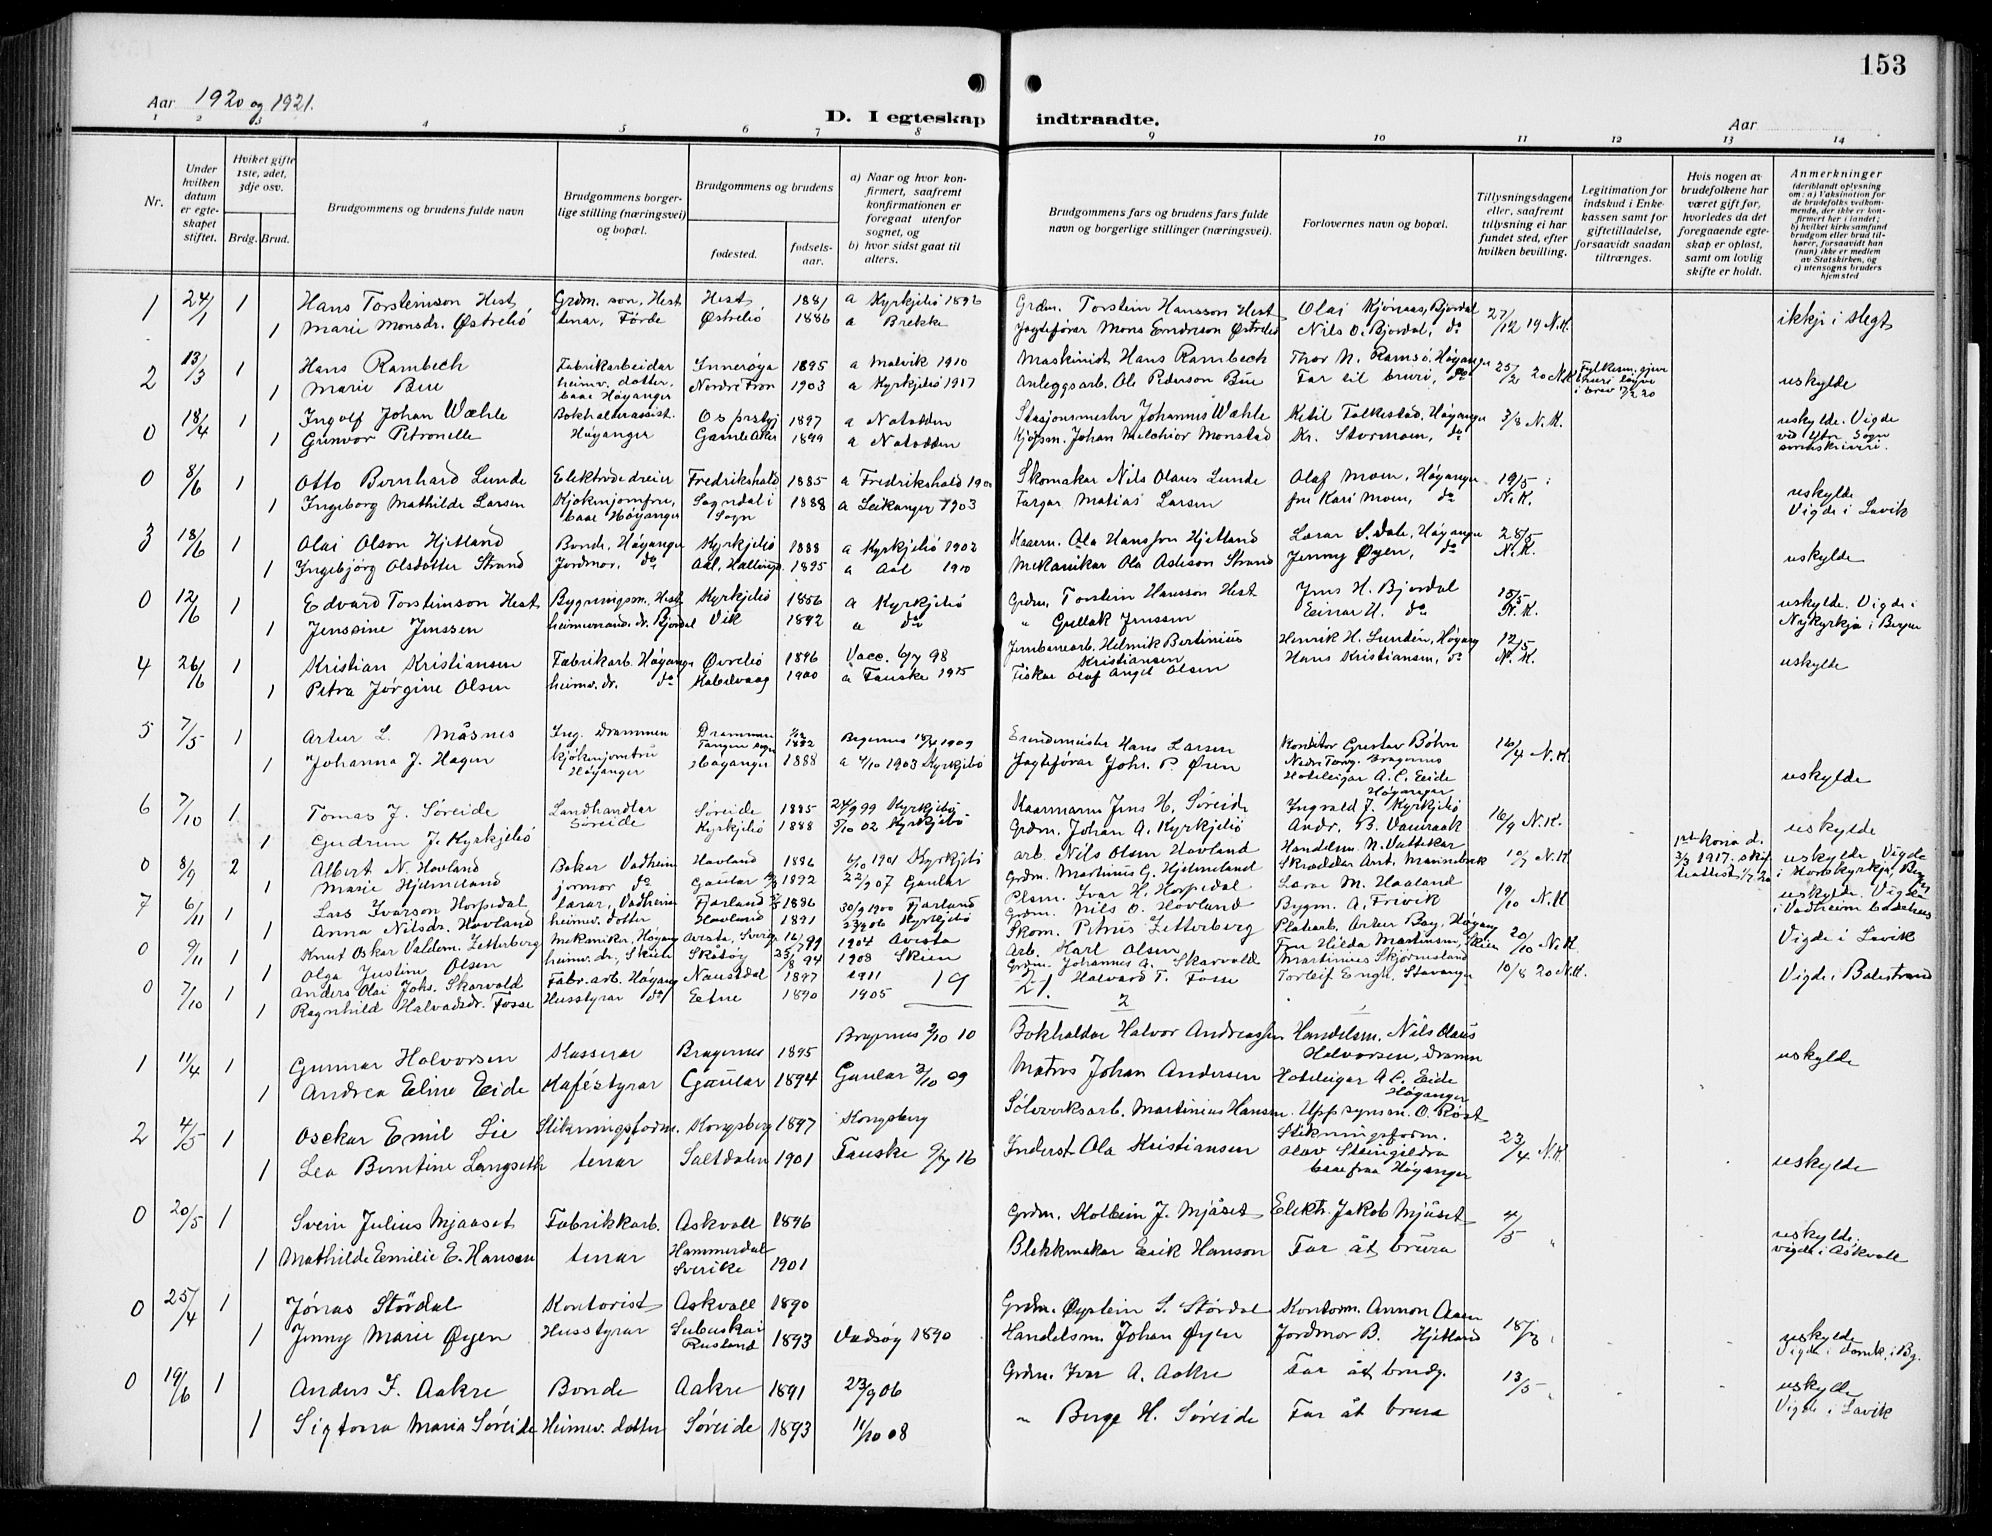 153
Aar 1920 og 1921.
D. I egteskap indtraadte.
Aar
1 2 3 4 5 6 7 8 9 10 11 12 13 14
Nr.
Under hvilken datum er egteskapet stiftet.
Hviket gifte 1ste, 2det, 3dje osv.
Brdg. Brud.
Brudgommens og brudens fulde navn
Brudgommens borgerlige stilling (næringsvei) og bopæl.
Brudgommens og brudens
fødested.
fødselsaar.
a) Naar og hvor konfirmert, saafremt konfirmationen er foregaat utenfor sognet, og
b) hvor sidst gaat til alters.
Brudgommens fars og brudens fars fulde navn og borgerlige stillinger (næringsvei).
Forlovernes navn og bopæl.
Tillysningsdagene eller, saafremt tillysning ei har fundet sted, efter hvilken bevilling.
Legitimation for indskud i Enkekassen samt for giftetilladelse, forsaavidt saadan tiltrænges.
Hvis nogen av brudefolkene har været gift før, hvorledes da det foregaaende egteskap er opløst, samt om lovlig skifte er holdt.
Anmerkninger (deriblandt oplysning om: a) Vaksination for de brudefolks vedkommende, der ikke er konfirmert her i landet; b) hvilket kirkesamfund brudgom eller brud tilhører, forsaavidt han (hun) ikke er medlem av Statskirken, og c) utensogns bruders hjemsted
1 24/1 1 Hans Torsteinson Hest Grdm. son, Hest Hest 1881 a Kyrkjebø 1896 Grdm. Torstein Hansson Hest Olai Kjönaas, Bjordal 27/12 19 N.K. ikkje i slegt
1 Marie Monsdr. Østrebö tenar, Förde Østrebö 1886 a Brekke Jagtefórar Mons Endreson Østrebö Nils O. Bjordal, do
2 13/3 1 Hans Rambech Fabrikarbeidar Innerøya 1895 a Malvik 1910 Maskinist Hans Rambech Thor N. Ramsö, Høyanger 25/2 20 N.K. uskylde
1 Marie Bue heimv. dotter, baae Høyanger Nordre Fron 1903 a Kyrkjebø 1917 Anleggsarb. Ole Pederson Bue Far til bruri, do
0 18/4 1 Ingolf Johan Wæhle Bokhalterassist. Høyanger Os prstgj 1897 a Notodden Stasjonsmester Johannes Wæhle Ketil Falkestad, Høyanger 3/8 N.K. uskylde. Vigde ved Ytre Sogn sorenskriveri.
1 Gunvor Petronelle Gamle Aker 1899 a Notodden Kjøpm. Johan Melchior Monstad Kr. Stormoen, do
0 8/6 1 Otto Bernhard Lunde Elektrodedreier Fredrikshald 1885 a Fredrikshald 1900 Skomakar Nils Olaus Lunde Olaf Moen, Høyanger 19/5 N.K. uskylde
1 Ingeborg Mathilde Larsen Kjøkenjomfru, baae Høyanger Sogndal i Sogn 1888 a Leikanger 1903 Fargar Matias Larsen fru Kari Moen, do Vigde i Lavik
3 18/6 1 Olai Olson Hjetland Bonde, Høyanger Kyrkjebö 1888 a Kyrkjebö 1902 Kaarm. Ola Hansson Hjetland Lærar S. Dale, Høyanger 28/5 N.K. uskylde
1 Ingebjörg Olsdotter Strand Jordmor, do Aal, Hallingd. 1895 a Aal 1910 Mekanikar Ola Asleson Strand Jenny Øyen, do
0 12/6 1 Edvard Torsteinson Hest Bygningsm., Hest Kyrkjebö 1856 a Kyrkjebö Grdm. Torstein Hansson Hest Jens H. Bjordal 15/5 N.K. uskylde. Vigde i Nykyrkja i Bergen
1 Jenssine Jenssen Bjordal Vik 1892 a do " Gullak Jenssen Einar H. do
4 26/6 1 Kristian Kristiansen Fabrikarb. Høyanger Øvrebö 1896 Vacc. 6/7 98 Jernbanearb. Helmik Bertinius Kristiansen Henrik H. Lunden, Høyang 12/5 N.K. uskylde
1 Petra Jörgine Olsen heimv. dr. do Kabelvaag 1900 a Fauske 1915 Fiskar Olaf Angel Olsen Hans Kristiansen, do
5 7/5 1 Artur L. Måsnes Ing. Drammen Drammen Tangen sogn 1892 Bragernes 1909 Hans Larsen Konditor Gustav Böhn 16/4 N.K.
1 Johanna J. Hagen Kjøkenjomfru Høyanger Høyanger 1888 a 4/10 1903 Kyrkjebö Jagtefórar Johs. P. Øren Hoteleigar A. C. Eide Høyanger uskylde
6 7/10 1 Tomas J. Söreide Landhandlar Söreide Söreide 1885 24/9 99 Kyrkjebö Kaarmann Jens H. Söreide Ingvald J. Kyrkjebö 16/9 N.K. uskylde
1 Gudrun J. Kyrkjebö Kyrkjebö 1888 5/10 02 Kyrkjebö Grdm. Johan A. Kyrkjebö Andr. B. Vamraak
0 8/9 2 Albert N. Hovland Bakar Vadheim Hovland 1886 6/10 1901 Kyrkjebö arb. Nils Olsen Hovland Handelsm. N. Vattekar 10/7 N.K. uskylde Vigde i Korskyrkja, Bergen
1 Marie Hjelmeland jormor do Gaular 1892 22/9 07 Gaular Grdm. Martinus G. Hjelmeland Skræddar Ant. Mannebak
7 6/11 1 Lars Ivarson Horpedal lærar, Vadheim Fjærland 1886 30/9 1900 Fjærland Plsm. Ivar H. Horpedal Lærar M. Haaland 19/10 N.K. uskylde Vigde i Vadheim bedehus
1 Anna Nilsdr. Hovland heimv. dotter Hovland 1891 23/9 06 Kyrkjebö Grdm. Nils O. Hovland Bygm. A. Frivik
0 9/11 1 Knut Oskar Valdem. Zetterberg Mekaniker, Høyang Avesta, Sverge 16/7 99 1904 Avesta Skom. Petrus Zetterberg Platearb. Artur Bay, Høyang 20/10 N.K. Vigde i Lavik
1 Olga Justine Olsen heimv. dr., Skien Skåtöy 23/8 94 1908 Skien Arb. Karl Olsen Fru Hilda Martinsen, Skien
0 7/10 1 Anders Olai Johs. Skarvold Fabr. arb. Høyang Naustdal 1897 1911 Grdm. Johannes A. Skarvold Martinius Skjørmesland 10/8 20 N.K. Vigde i Balestrand
1 Ragnhild Halvadsdr. Fosse Husstyrar do Eetne 1890 1905 Halvard T. Fosse Torleif Engh, Stavanger
1 11/4 1 Gunnar Halvorsen Kasserar Bragernes 1895 Bragernes 2/10 10 Bokhaldar Halvor Andreassen Handelsm. Nils Olaus Halvorsen, Dramn uskylde
1 Andrea Eline Eide Kaféstyrar Gaular 1894 Gaular 3/10 09 Matros Johan Andersen Hoteleigar A C. Eide Høyanger
2 4/5 1 Osckar Emil Lie Stikningsform. Kongsberg 1897 Kongsberg Sölvverksarb. Martinius Hansen Uppsynsm. O. Röst Stikningsform. 23/4 N.K.
1 Lea Berntine Langseth tenar Saltdalen 1901 Fauske 9/7 16 Inderst Ola Kristiansen Olav Steingildra baae fraa Høyanger uskylde
0 20/5 1 Svein Julius Mjaaset Fabrikkarb. Askvoll 1896 Grdm. Kolbein J. Mjåset Elektr. Jakob Mjåset 4/5 uskylde. vigde i Askvoll
1 Mathilde Emilie E. Hanson tenar Hammerdal Sverike 1901 Blekkmakar Erik Hanson Far åt brura
0 25/4 1 Jónas Stördal Kontorist Askvoll 1890 Grdm. Øystein S. Stördal Kontorm. Annon Aaen
1 Jenny Marie Øyen Husstyrar Rusland 1893 Vadsøy 1890 Handelsm. Johan Øyen Jordmor B. Hjetland 18/3 uskylde
0 19/6 1 Anders I. Aakre Bonde Aakre 1891 23/9 06 Grdm. Ivar A. Aakre Far åt brudg. 13/5 uskylde Vigde i Lavik
1 Sigtona Maria Söreide Heimev. dotter Söreide 1893 11/10 08 " Berge H. Söreide Far åt brura